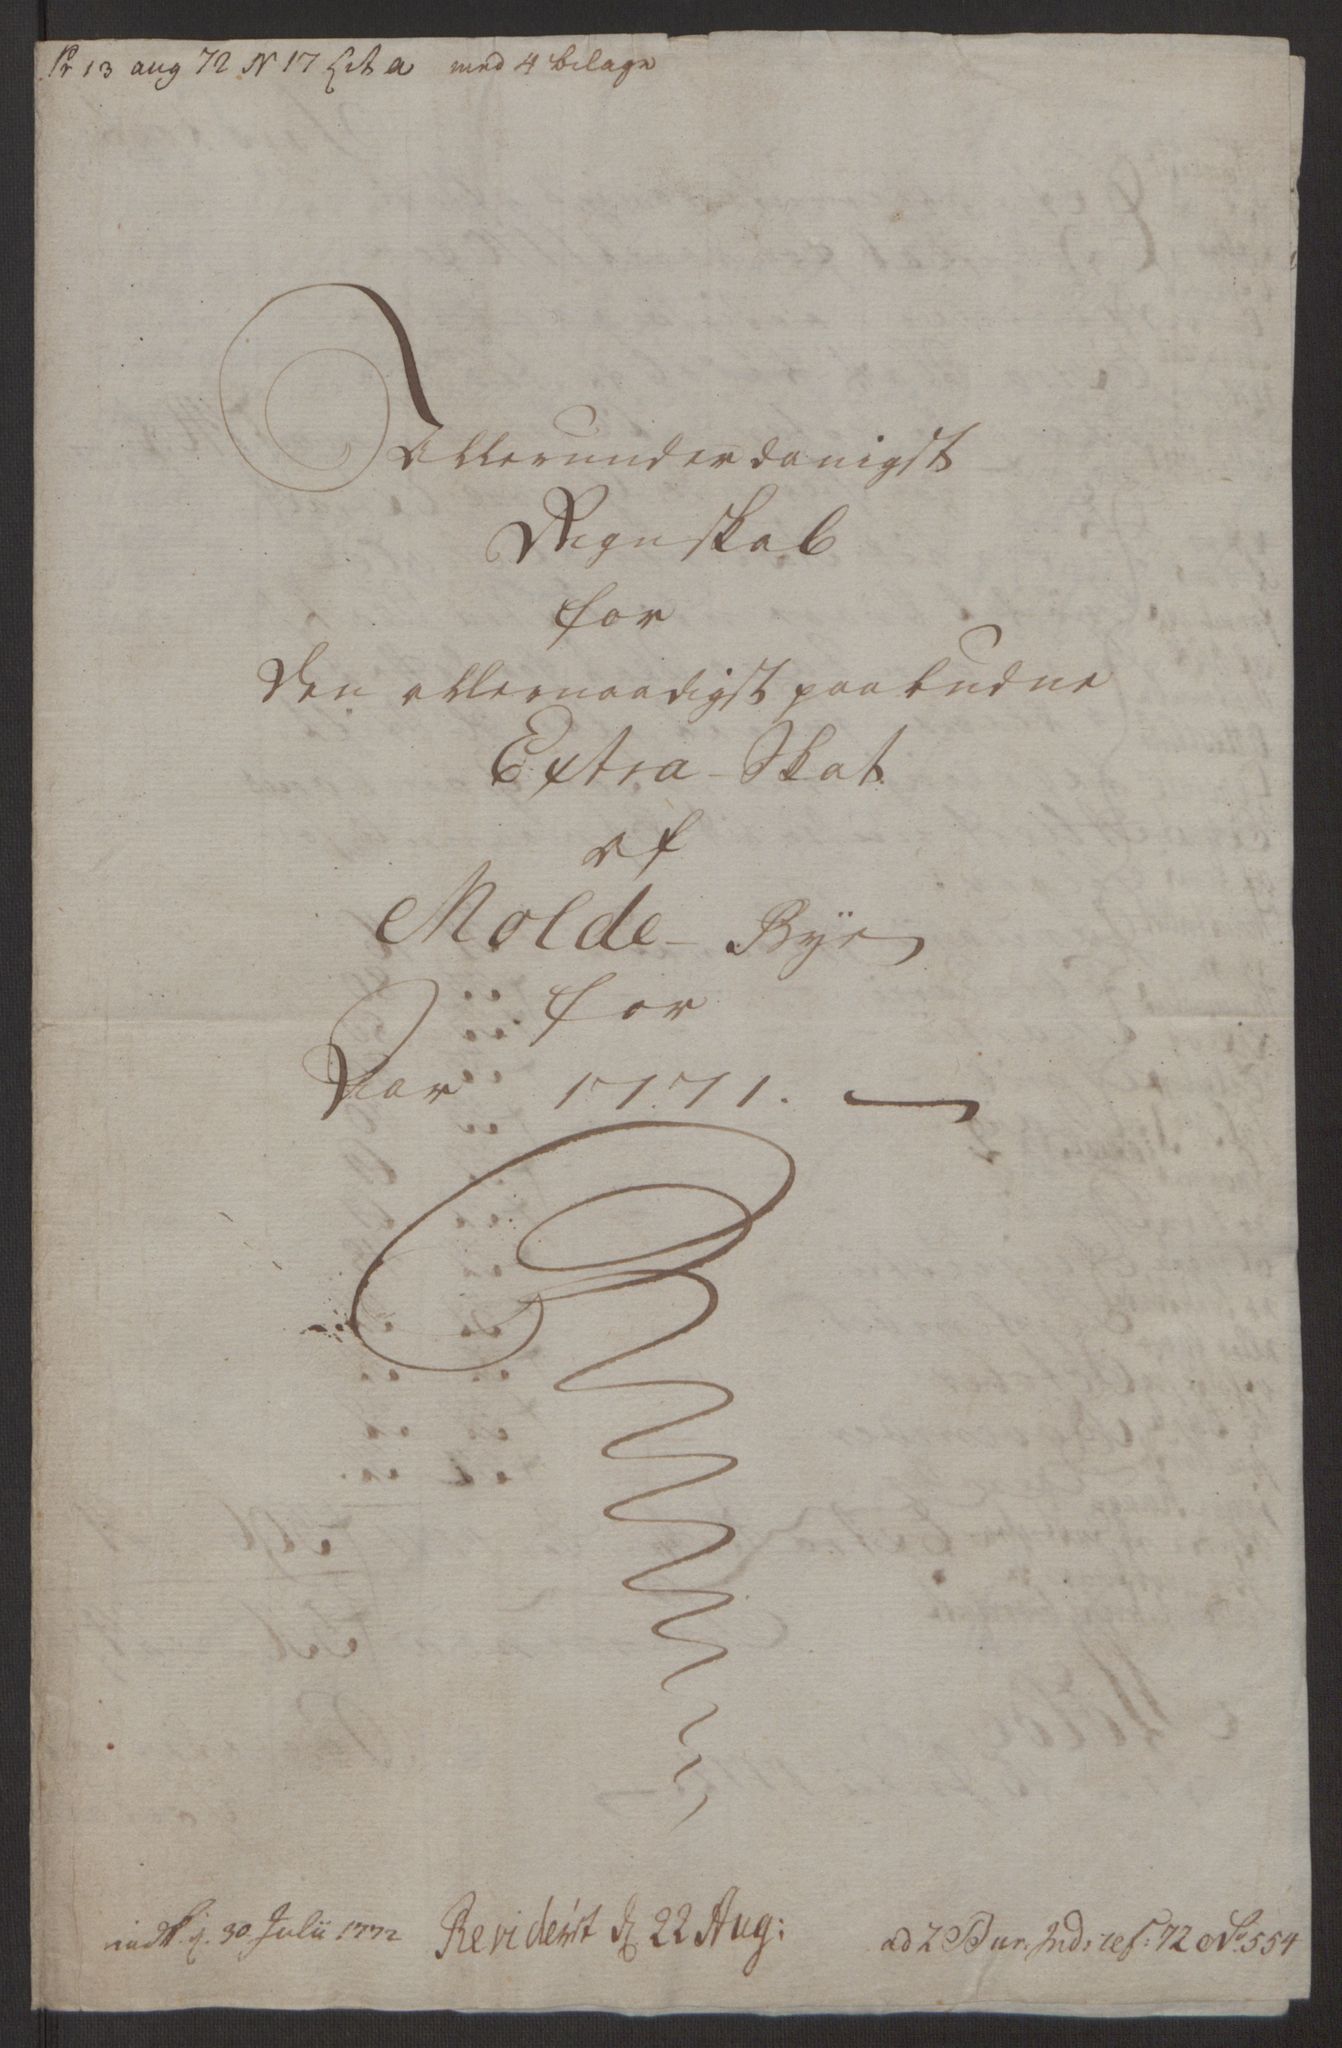 Pr 13 aug 72 N 17 Lit a med 4 bilage
Allerunderdanigst
Regnskab
for
Den allernaadigst paabudne
Extra-Skat
af
Molde- Bÿe
for
Aar 1771.
30 Julii 1772
Reviderit d 22 Aug:
ad 2 Bur: Ind: 72 No: 554